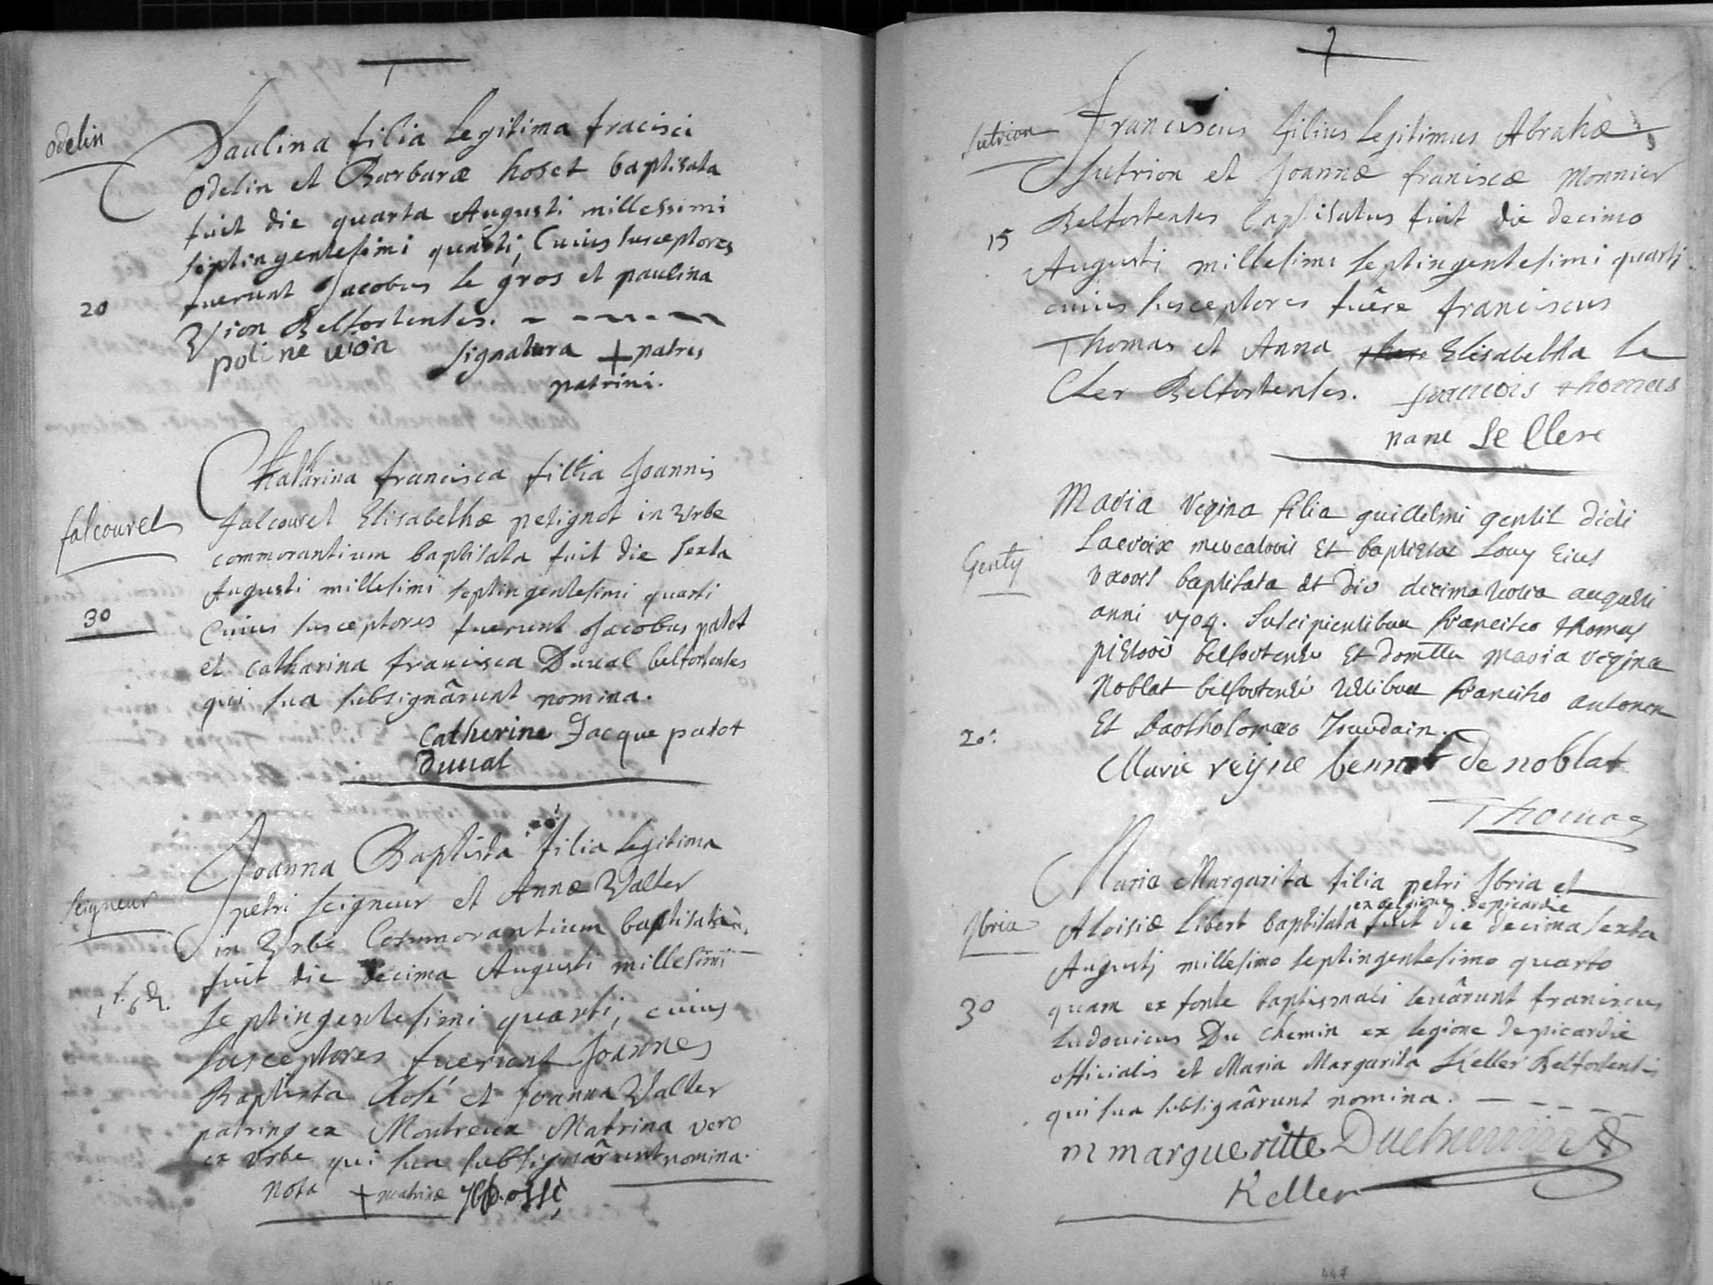 odelin
Paulina filia legitima fracisci
odelin et Barbaræ hoset baptisata
fuit die quarta Augusti millessimi
septingentesimi quarti, Cuius susceptores
fuerunt Jacobus le gros et paulina
20
Vion Belfortentes.
poline uion signatura + patris
patrini.
falcouret
Catharina francisca filia Joannis
falcouret Elisabethæ petignot in Urbe
commorantium baptisata fuit die sexta
Augusti millesimi septingentesimi quarti
30
Cuius susceptores fuerunt Jacobus patot
et catharina francisca Duual belfortentes
qui sua subsignârunt nomina.
Catherine Jacque patot
Duual
seigneur
Joanna Baptista filia legitima
petri seigneur et Annæ Valter
in Urbe Commorantium baptisata
fuit die decima Augusti millesimi
septingentesimi quarti, cuius
susceptores fuerunt Joannes
Baptista et Joanna Valter
patrinus ex Montreux Matrina vero
ex Urbe qui sua subsignârunt nomina.
nota + matrinæ
7
sutrion
Franciscus filius legitimus Abrahæ
sutrion et Joannæ franciscæ Monnier
Belfortentes baptisatus fuit die decimo
15
Augusti millesimi septingentesimi quarti
cuius susceptores fuêre franciscus
Thomas et Anna Elisabetha le
Cler Belfortentes. francois thomas
nane le Clere
Maria Regina filia guillelmi gentil dicti
Lacroix mercatoris Et baptistae Louy Eius
Genty
uxoris baptisata Et die decima tertia augusti
anni 1704. suscipientibus francisco thomas
pistore belfortensi Et domlla maria regina
Noblat belfortensi testibus francisco antonin
20.
Et Bartholomæo Jourdain.
Marie reyne bennot de noblat
Thomas
Maria Margarita filia petri Ibria et
ex legione de picardie
Ibria
Aloisiæ libert baptisata fuit die decima sexta
Augusti millesimo septingentesimo quarto
30
quam ex fonte baptismali leuârunt franciscus
Ludouicus Du chemin ex legione de picardie
officialis et Maria Margarita Keller Belfortentis
qui sua subsignârunt nomina.
m margueritte Duchemin
Keller